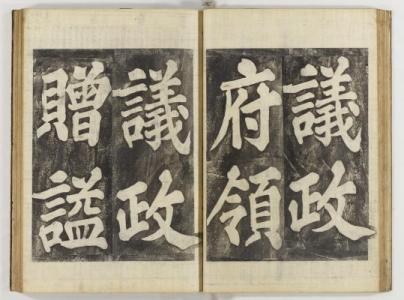 議政
府領
議政
贈諡